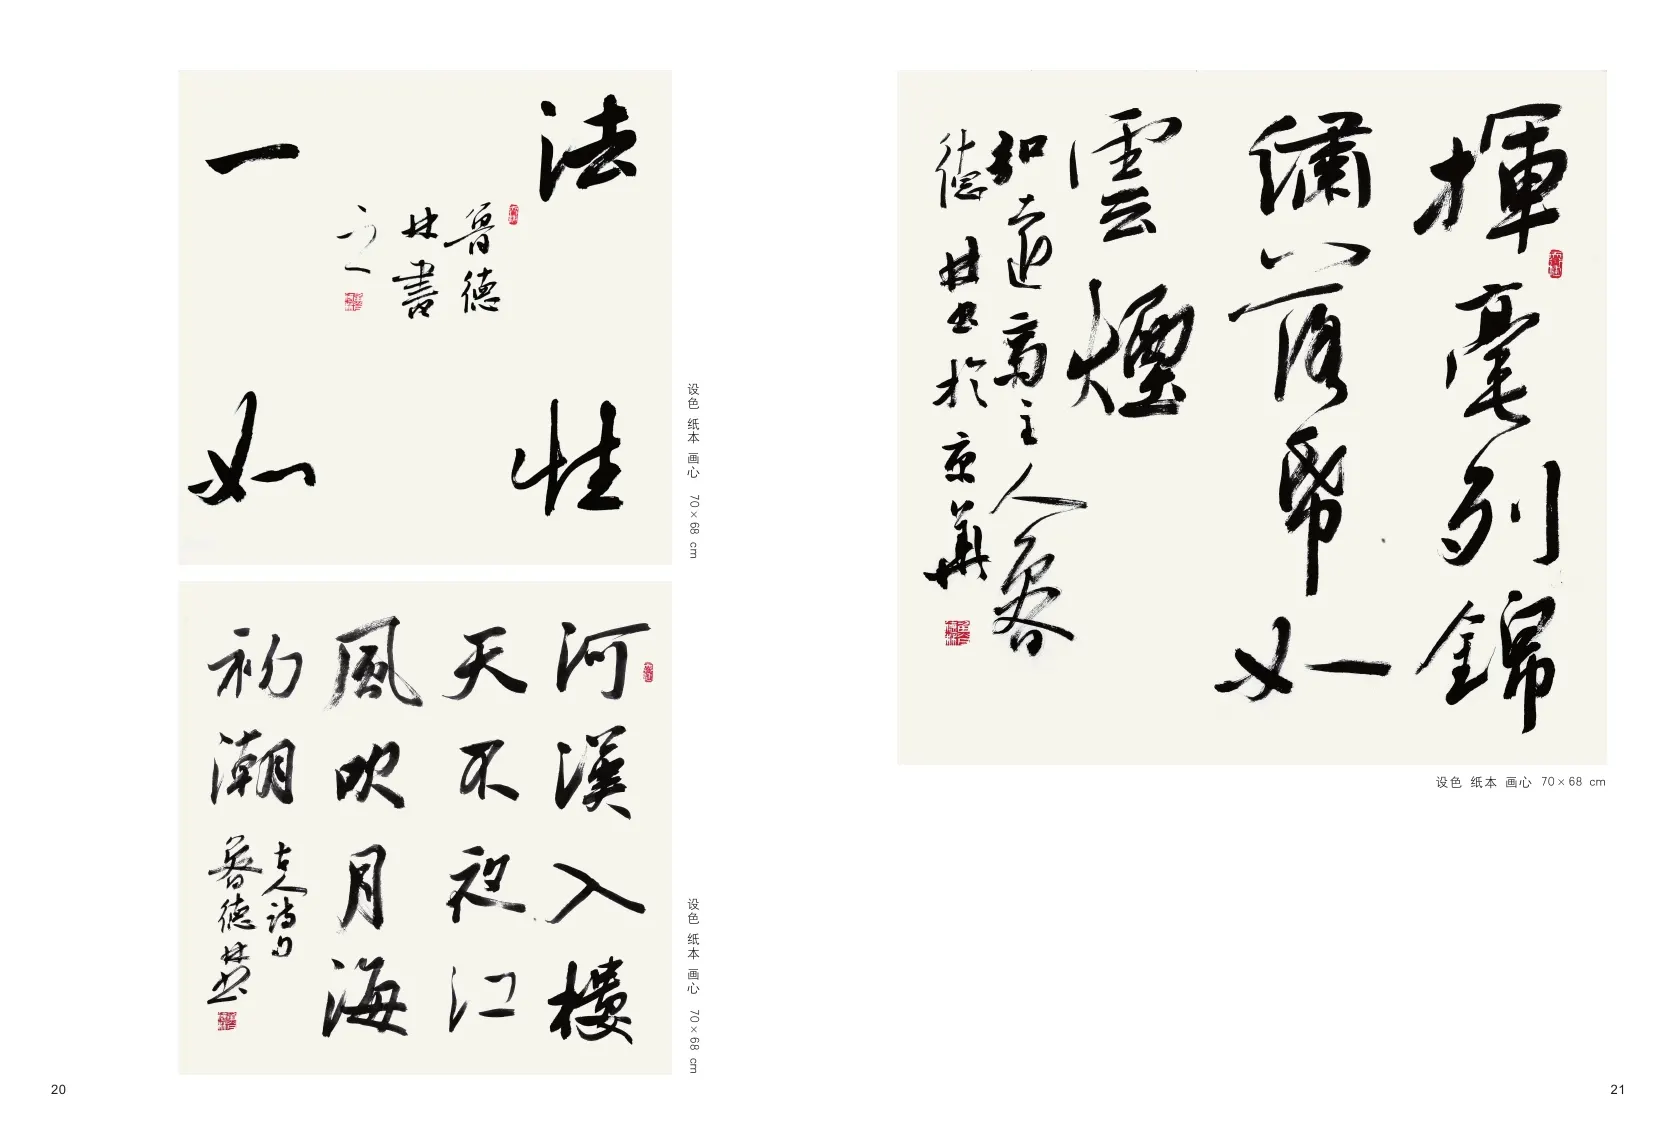 法性
一如
魯德
林書
设色 纸本 画心 70×68 cm
河漢入樓
天不夜江
風吹月海
初潮
古人詩句
魯德林書
设色 纸本 画心 70×68 cm
20
揮毫列錦
繡落紙如
雲煙
知遠高主人魯
德林書於京華
设色 纸本 画心 70×68 cm
21